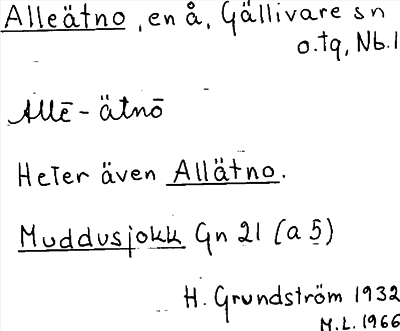 Alleätno, en å, Gällivare sn
o.tg, Nb.l
Allē-ätnō
Heter även Allätno.
Muddusjokk Gn 21 (a 5)
H. Grundström 1932
M.L. 1966